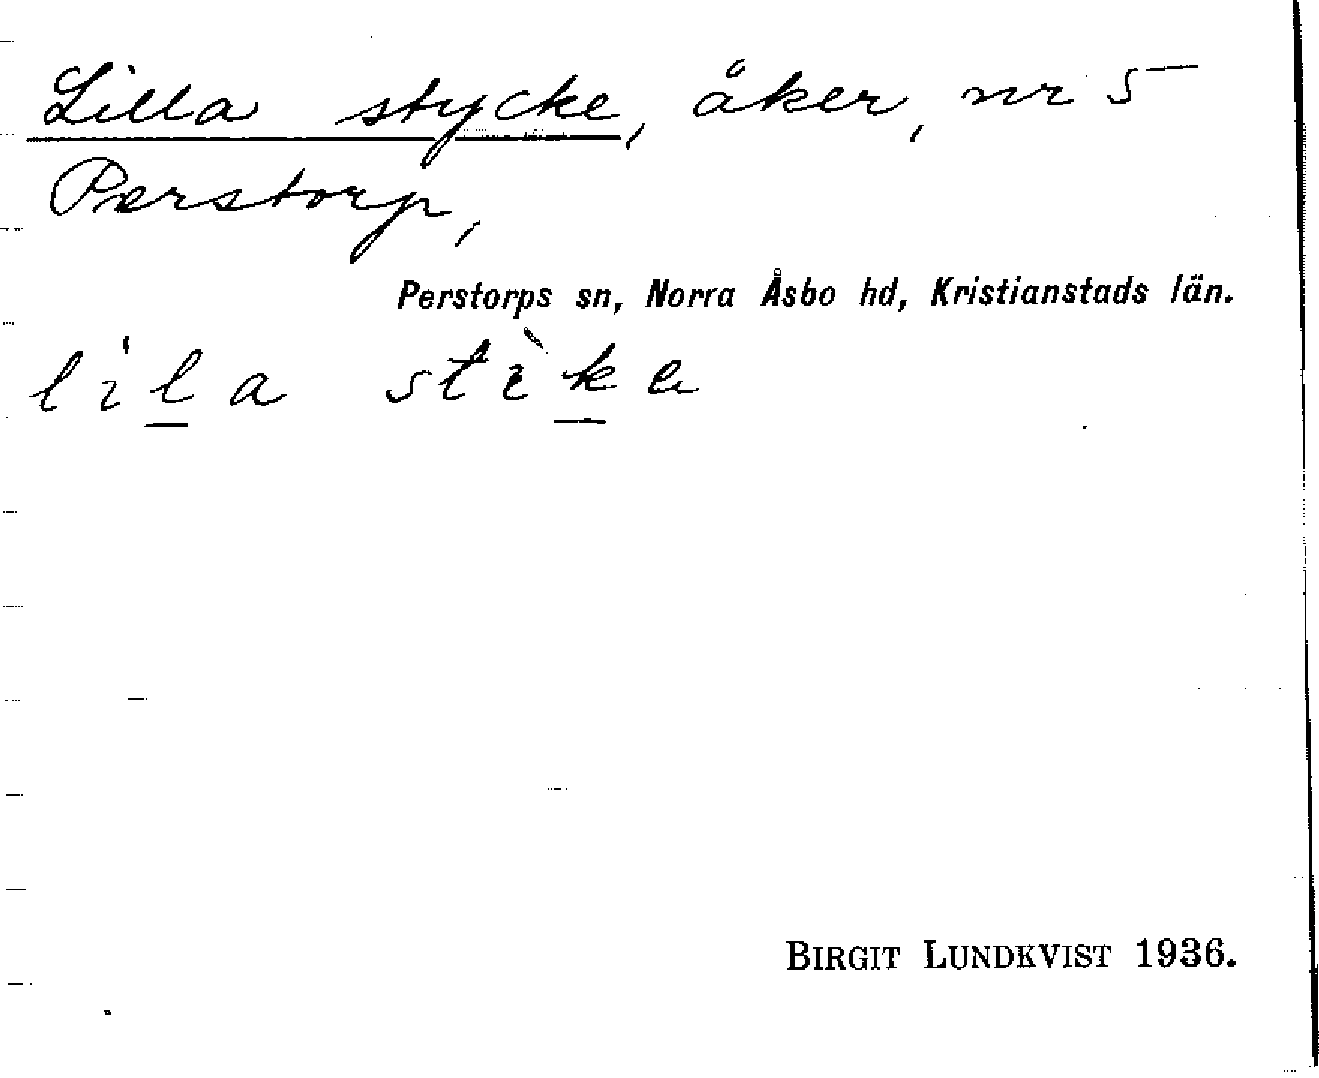 Lilla stycke, åker, nr 5
Perstorp,
Perstorps sn, Norra Åsbo hd, Kristianstads län.
lila
BIRGIT LUNDKVIST 1936.